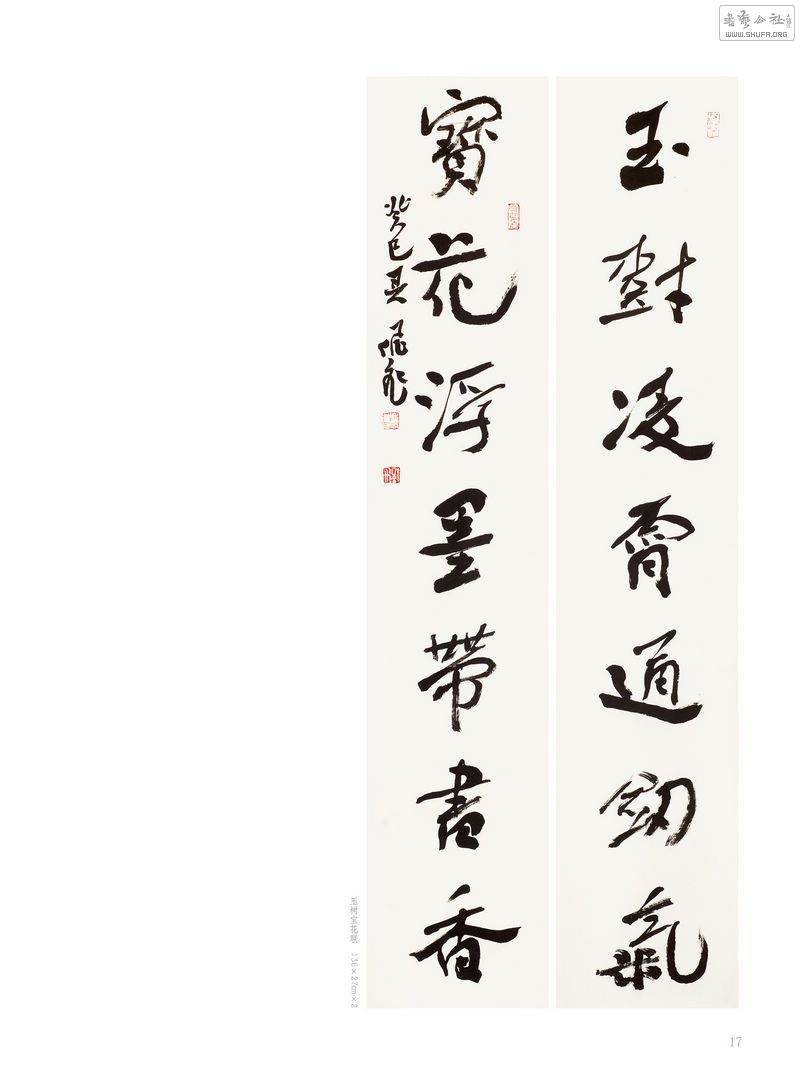 書藝公社
WWW.SHUFA.ORG
玉樹凌霄通劒氣
寶花浮墨帶書香
癸巳夏
玉树宝花联 136×27cm×2
17